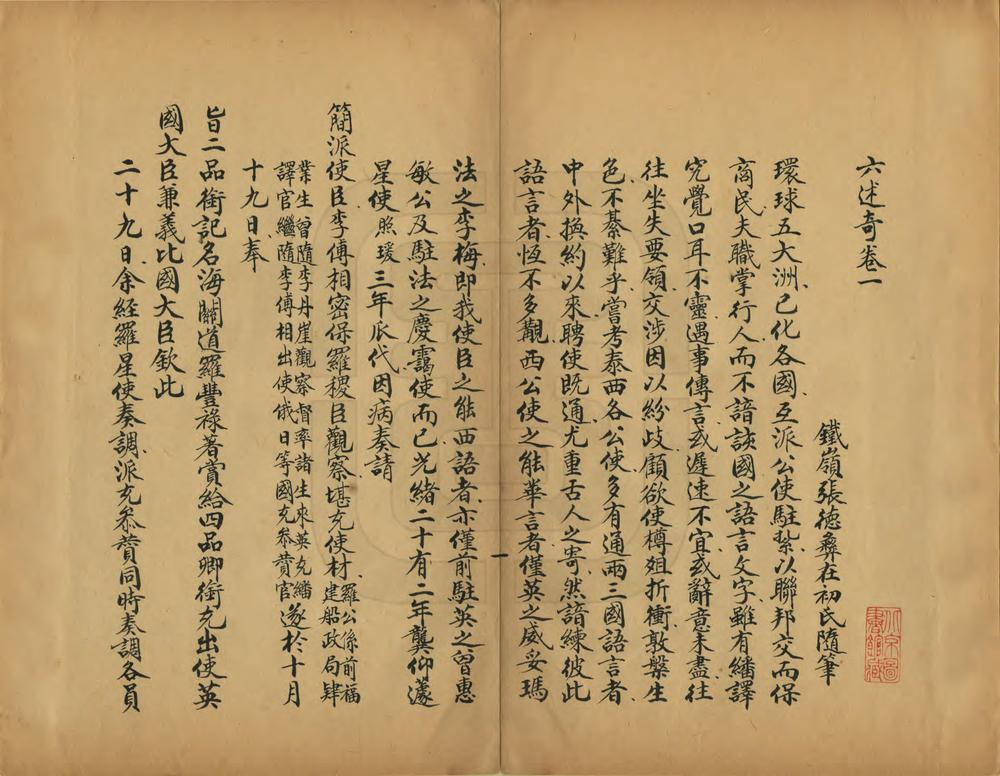 六述奇卷一
鐵嶺張德彝在初氏隨筆
環球五大洲已化各國互派公使駐紮以聯邦交而保
商民夫職掌行人而不諳該國之語言文字雖有繙譯
究覺口耳不靈遇事傳言或遲速不宜或辭意未盡往
往坐失要領交涉因以紛歧顧欲使樽俎折衝敦槃生
色不綦難乎嘗考泰西各公使多有通兩三國語言者
中外換約以來聘使既通尤重舌人之寄然諳練彼此
語言者恆不多覯西公使之能華言者僅英之威妥瑪
一
法之李梅即我使臣之能西語者亦僅前駐英之曾惠
敏公及駐法之慶靄使而已光緒二十有二年龔仰蘧
星使照瑗三年瓜代因病奏請
簡派使臣李傅相密保羅稷臣觀察堪充使材羅公係前福
建船政局肄
業生曾隨李丹崖觀察督率諸生來英充繙
譯官繼隨李傅相出使俄日等國充參贊官遂於十月
十九日奉
旨二品銜記名海關道羅豐祿著賞給四品卿銜充出使英
國大臣兼義比國大臣欽此
二十九日余經羅星使奏調派充參贊同時奏調各員
北京圖
書館藏